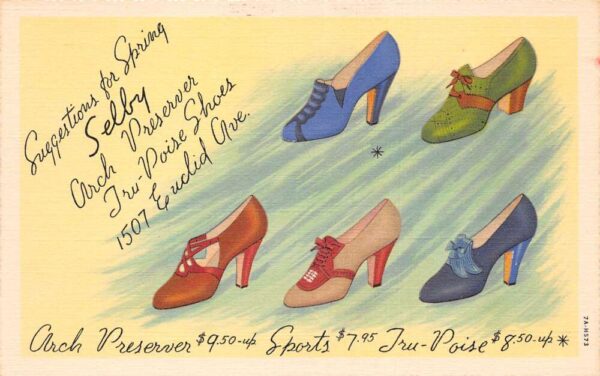 Suggestions for Spring
Selby
Arch Preserver
Tru-Poise Shoes
1507 Euclid Ave.
*
Arch Preserver $9.50-up Sports $7.95 Tru-Poise $8.50-up *
7A-H573